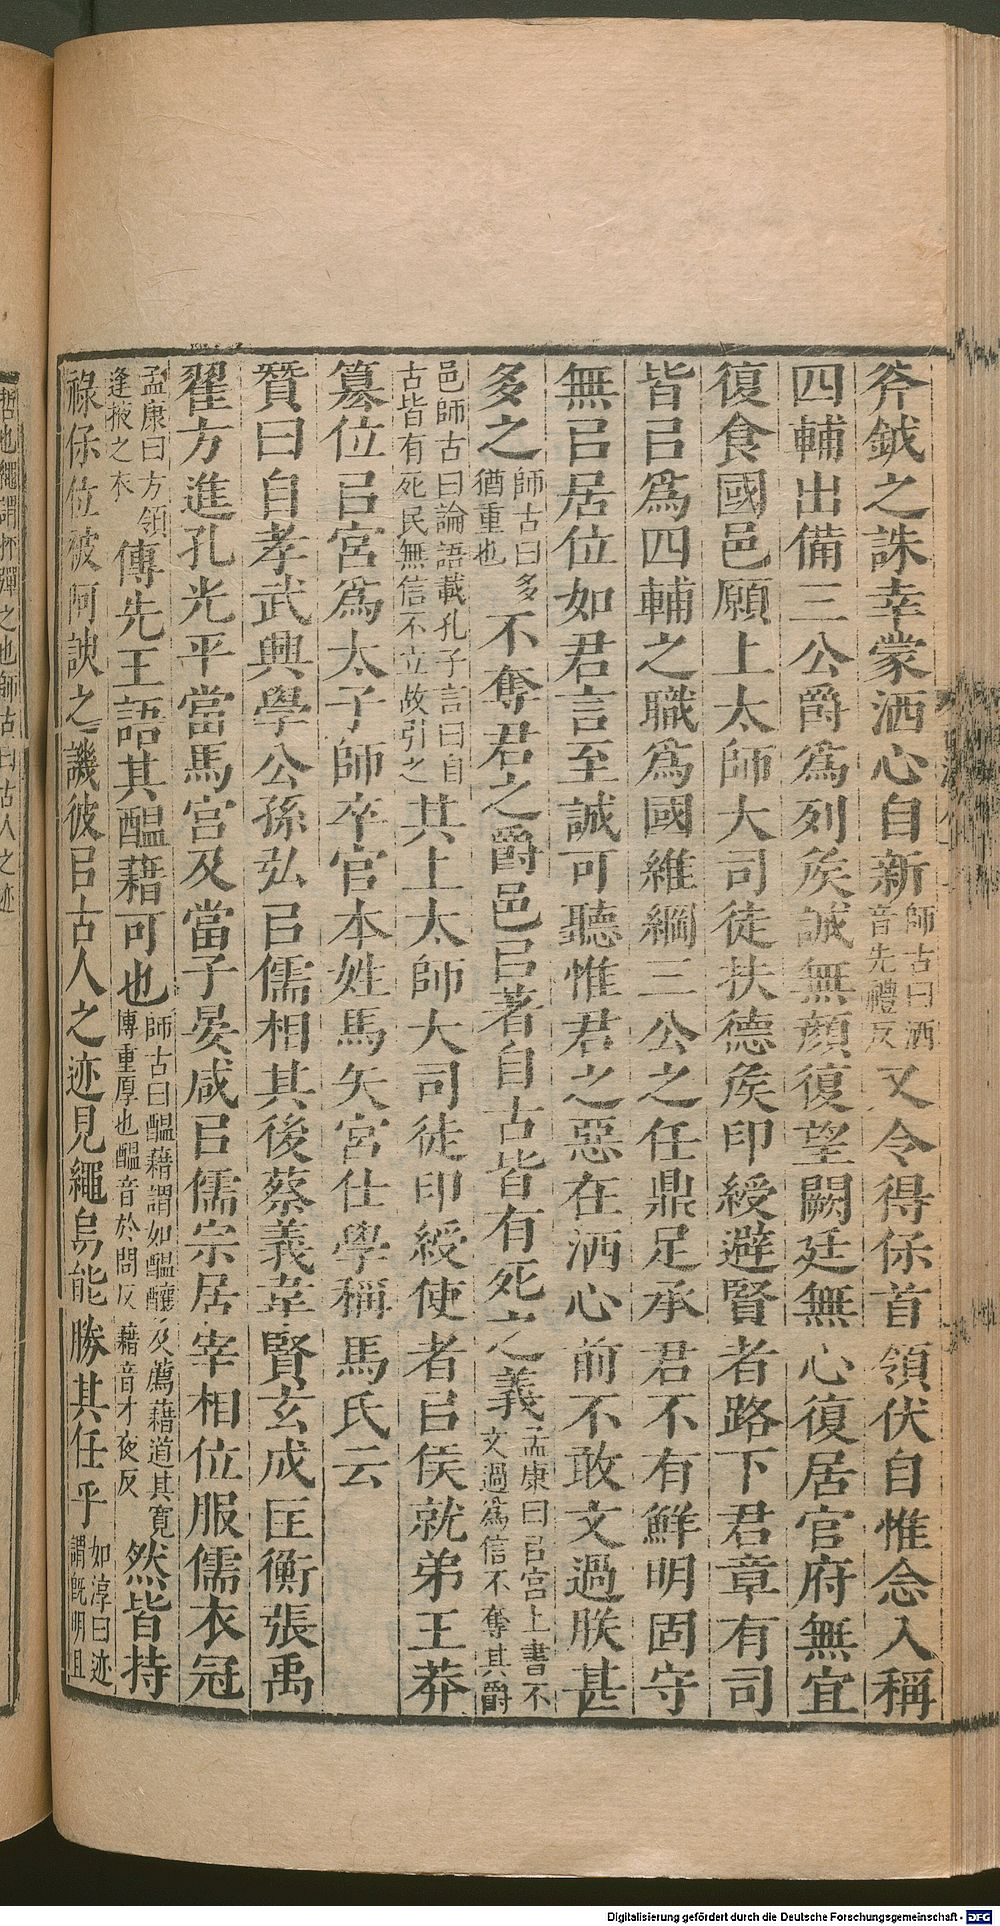 斧鉞之誅幸蒙洒心自新師古曰洒音先禮反又令得保首領伏自惟念入稱
四輔出備三公爵爲列矦誠無顔復望闕廷無心復居官府無宜
復食國邑願上太師大司徒扶德矦印綬避賢者路下君章有司
皆㠯爲四輔之職爲國維綱三公之任鼎足承君不有鮮明固守
無㠯居位如君言至誠可聽惟君之惡在洒心前不敢文過朕甚
多之師古曰多猶重也不奪君之爵邑㠯著自古皆有死之義孟康曰㠯宮上書不文過爲信不奪其爵
邑師古曰論語載孔子言曰自古皆有死民無信不立故引之其上太師大司徒印綬使者㠯侯就弟王莽
篡位㠯宮爲太子師卒官本姓馬矢宮仕學稱馬氏云
贊曰自孝武興學公孫弘㠯儒相其後蔡義韋賢玄成匡衡張禹
翟方進孔光平當馬宮及當子晏咸㠯儒宗居宰相位服儒衣冠
孟康曰方領逢掖之衣傳先王語其醖藉可也師古曰醖藉謂如醖釀及薦藉道其寬愽重厚也醖音於問反藉音才夜反然皆持
祿保位被阿諛之譏彼㠯古人之迹見繩烏能勝其任乎如淳曰迹謂旣明且
哲也繩謂抨彈之也師古曰古人之迹
Digitalisierung gefördert durch die Deutsche Forschungsgemeinschaft - DFG